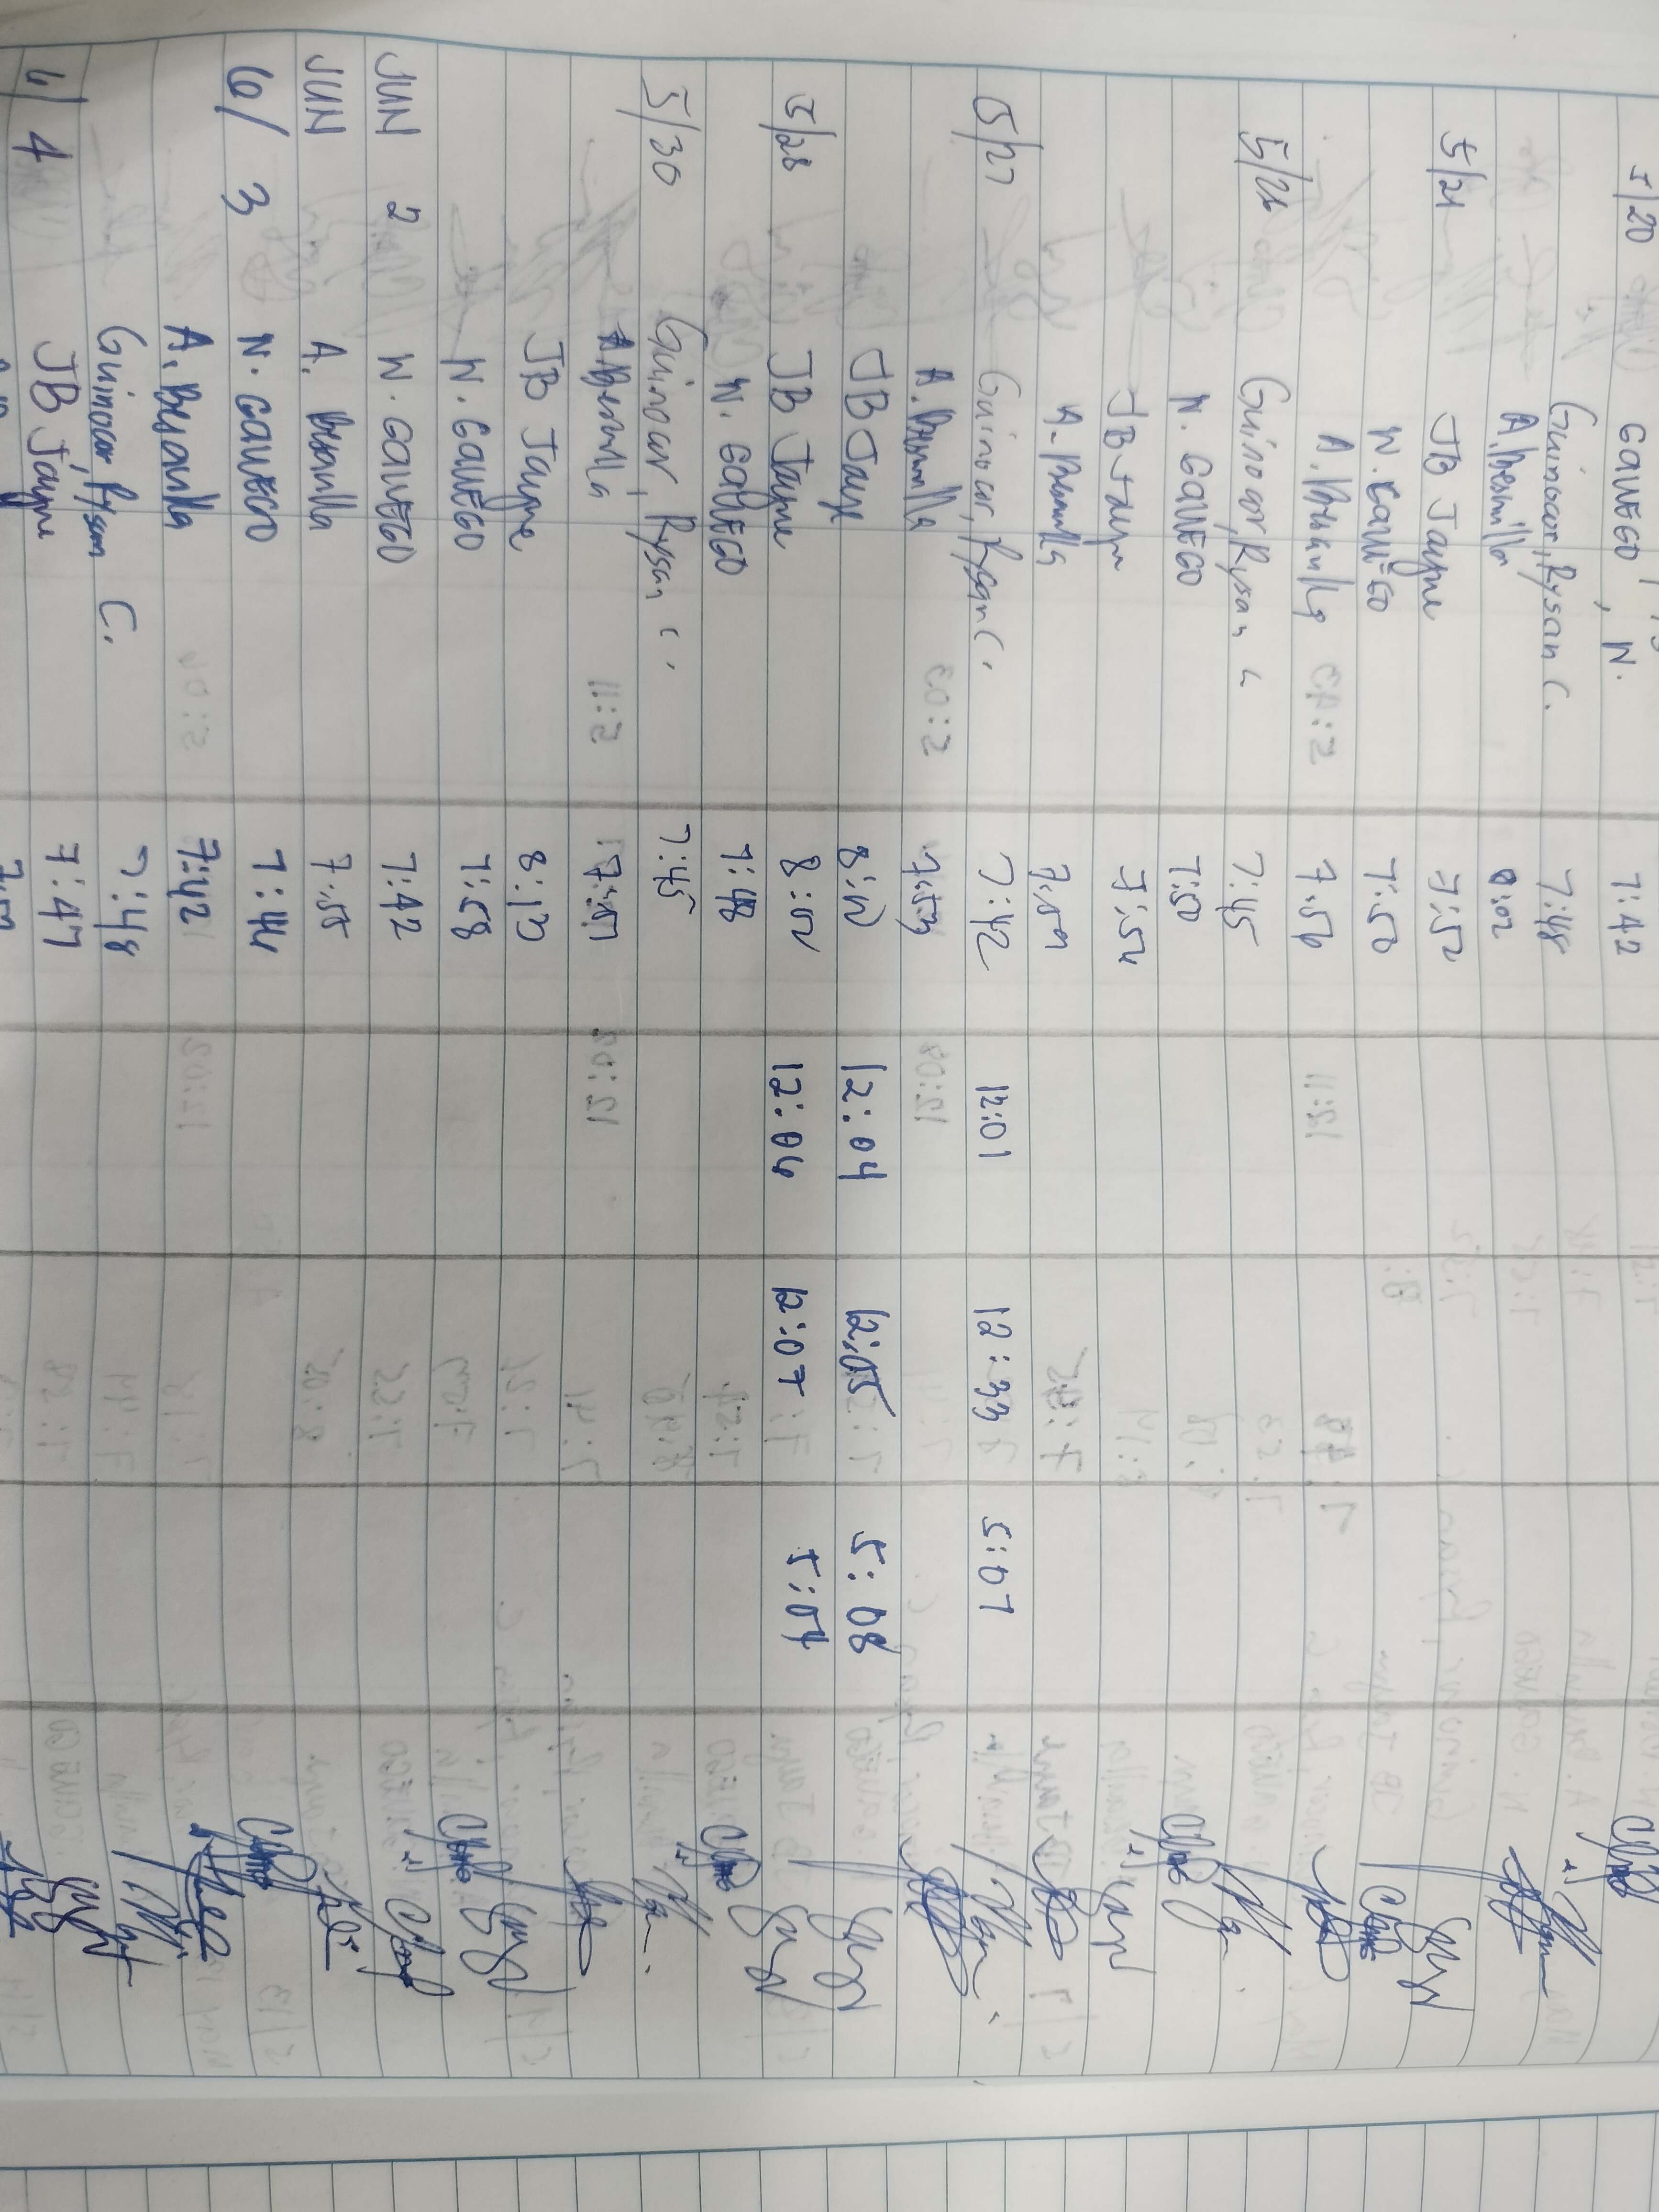 5/20 GALLEGO, N. 7:42
Guinocor, Rysan C. 7:48
A. Besmilla 8:02
5/21 JB Jayme 7:52
N. GALLEGO 7:50
A. Besanilla 7:56
5/26 Guinocor, Rysan C 7:45
N. GALLEGO 7:50
JB Jayme 7:54
A. Besanilla 7:59
5/27 Guinocor, Rysan C. 7:42 12:01 12:33 5:07
A. Besmilla 7:53
JB Jayme 8:12 12:04 12:05 5:08
5/28 JB Jayme 8:02 12:04 12:07 5:07
N. GALLEGO 7:48
5/30 Guinocor, Rysan C. 7:45
A. Besmilla 7:57
JB Jayme 8:13
N. GALLEGO 7:58
JUN 2 N. GALLEGO 7:42
JUN A. Besanilla 7:55
6/3 N. GALLEGO 7:44
A. Besanilla 7:42
Guinocor, Rysan C. 7:48
6/4 JB Jayme 7:47